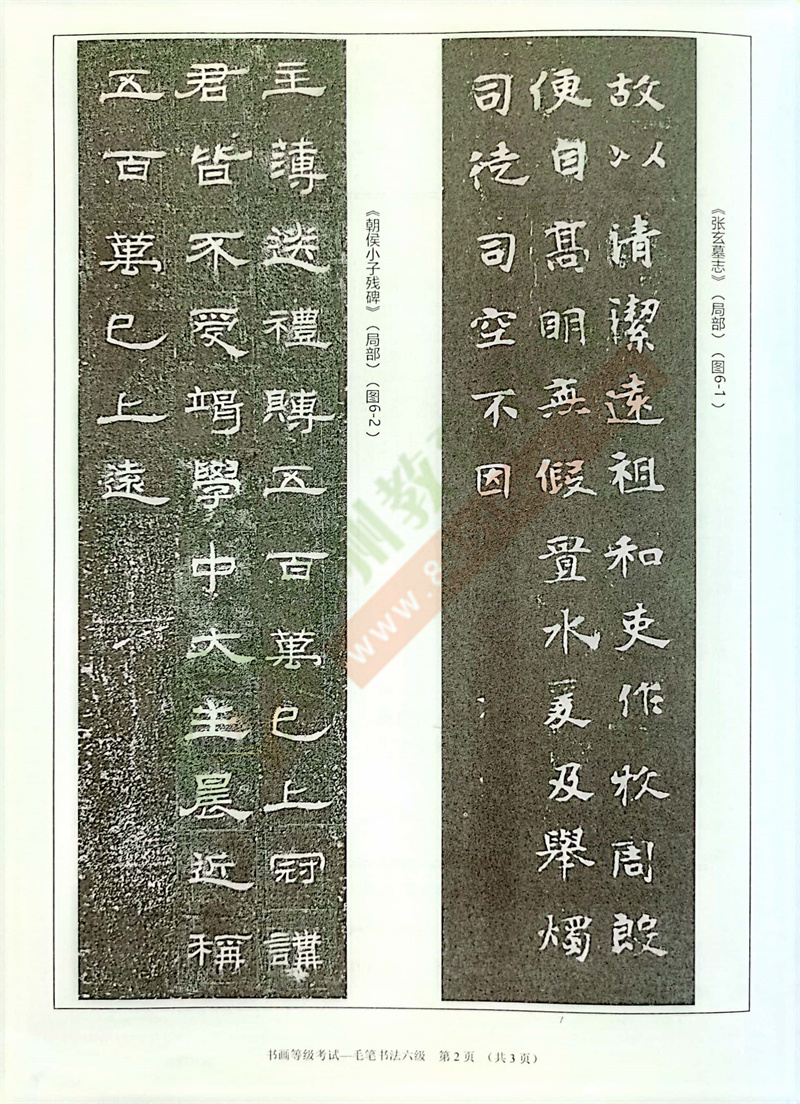 《张玄墓志》（局部）（图6-1）
故以清潔遠祖和吏作牧周殷
便自髙明無假置水爰及舉燭
司徒司空不因
《朝侯小子残碑》（局部）（图6-2）
主薄送禮賻五百萬已上冠講
君皆不受竭學中大主晨近稱
五百萬已上遠
书画等级考试—毛笔书法六级 第2页 （共3页）